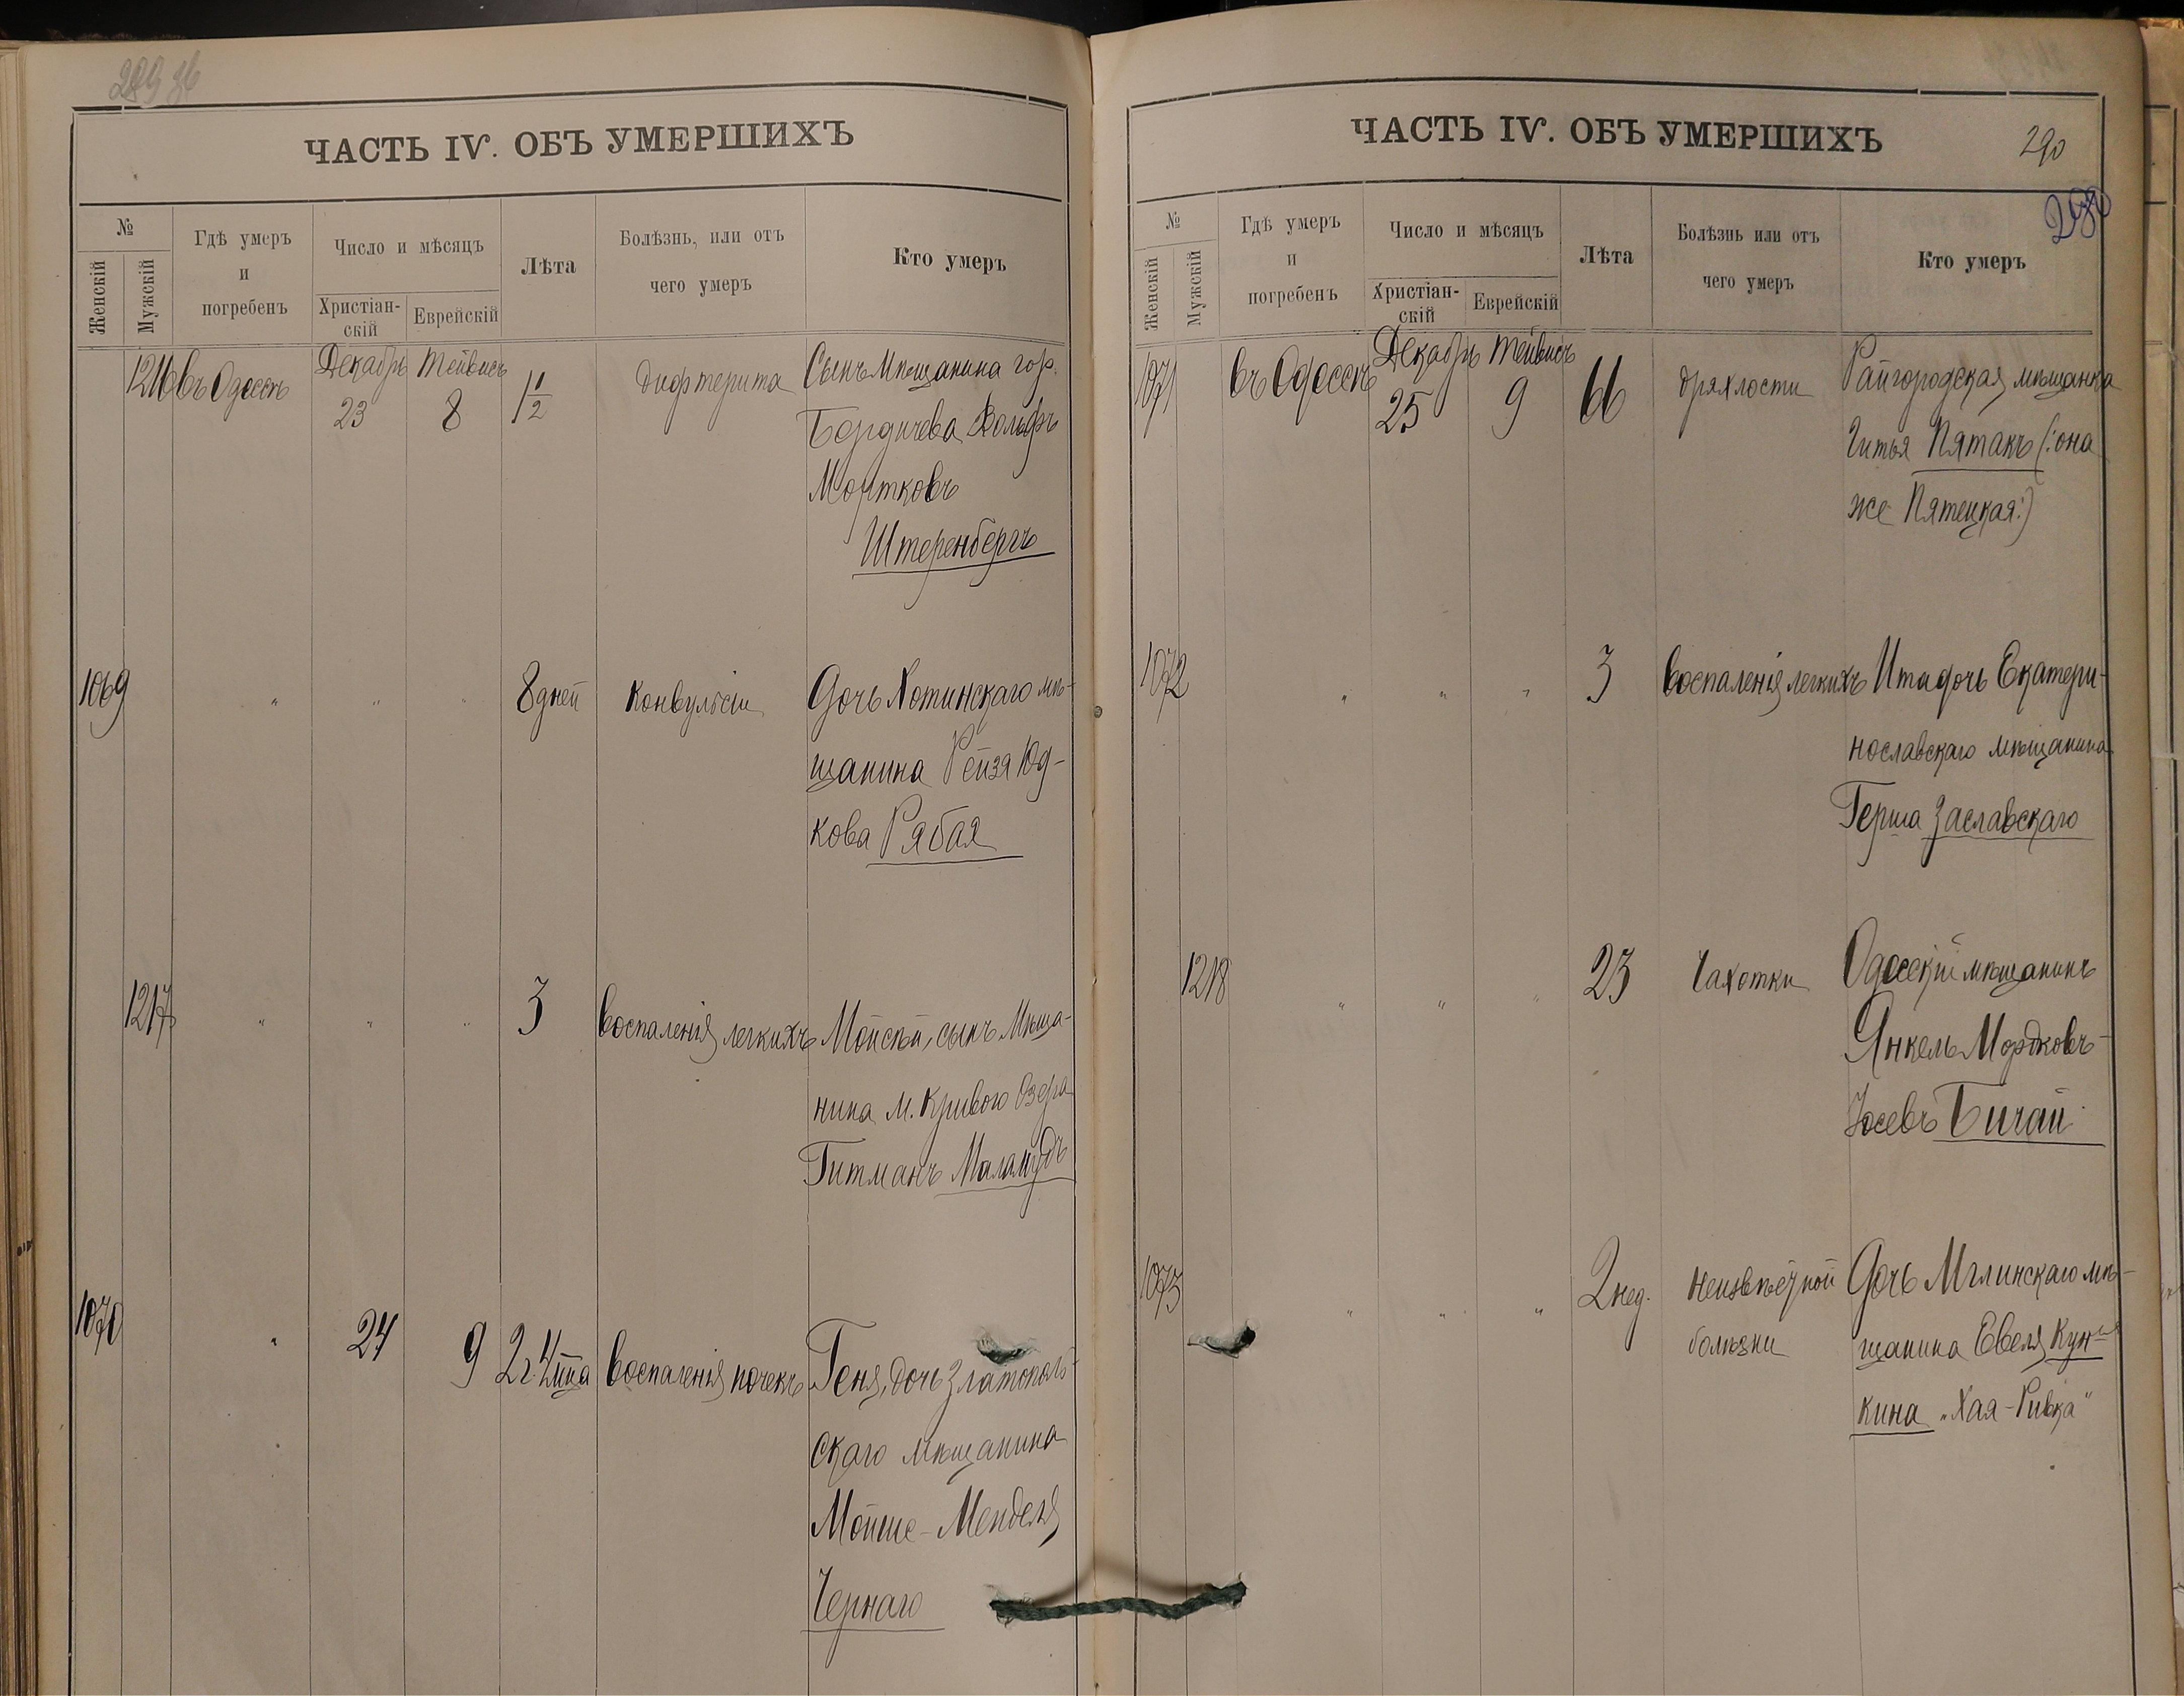 289 об
ЧАСТЬ IV. ОБЪ УМЕРШИХЪ
№
Женскій
Мужскій
Гдѣ умеръ
и
погребенъ
Число и мѣсяцъ
Христіан-
скій
Еврейскій
Лѣта
Болѣзнь, или отъ
чего умеръ
Кто умеръ
1216 въ Одессѣ Декабрь 23 Тейвисъ 8 1 1/2 дифтерита Сынъ Мѣщанина гор.
Бердичева Вольфъ
Мортковъ
Штеренбергъ
1069 " " " 8 дней Конвульсіи Дочь Хотинскаго мѣ-
щанина Рейзя Юд-
кова Рябая
1217 " " " 3 воспаленія легкихъ Мойсѣй, сынъ Мѣща-
нина м. Кривого Озера
Гитманъ Маламудъ
1070 " 24 9 2 г. 4 м-ца воспаленія почекъ Геня, дочь Златополь-
скаго мѣщанина
Мойше-Менделя
Чернаго
ЧАСТЬ IV. ОБЪ УМЕРШИХЪ
290
№
Женскій
Мужскій
Гдѣ умеръ
и
погребенъ
Число и мѣсяцъ
Христіан-
скій
Еврейскій
Лѣта
Болѣзнь или отъ
чего умеръ
Кто умеръ
1071 въ Одессѣ Декабрь 25 Тейвисъ 9 66 дряхлости Райгородская мѣщанка
Гитья Пятакъ (:она
же Пятецкая:)
1072 " " " 3 воспаленія легкихъ Ита дочь Екатери-
нославскаго мѣщанина
Герша Заславскаго
1218 " " " 23 Чахотки Одесскій мѣщанинъ
Янкель Мордковъ-
Іосевъ Бичай
1073 " " " 2 нед. Неизвѣстной Дочь Мглинскаго мѣ-
болѣзни щанина Евеля Кун-
кина „Хая-Ривка"